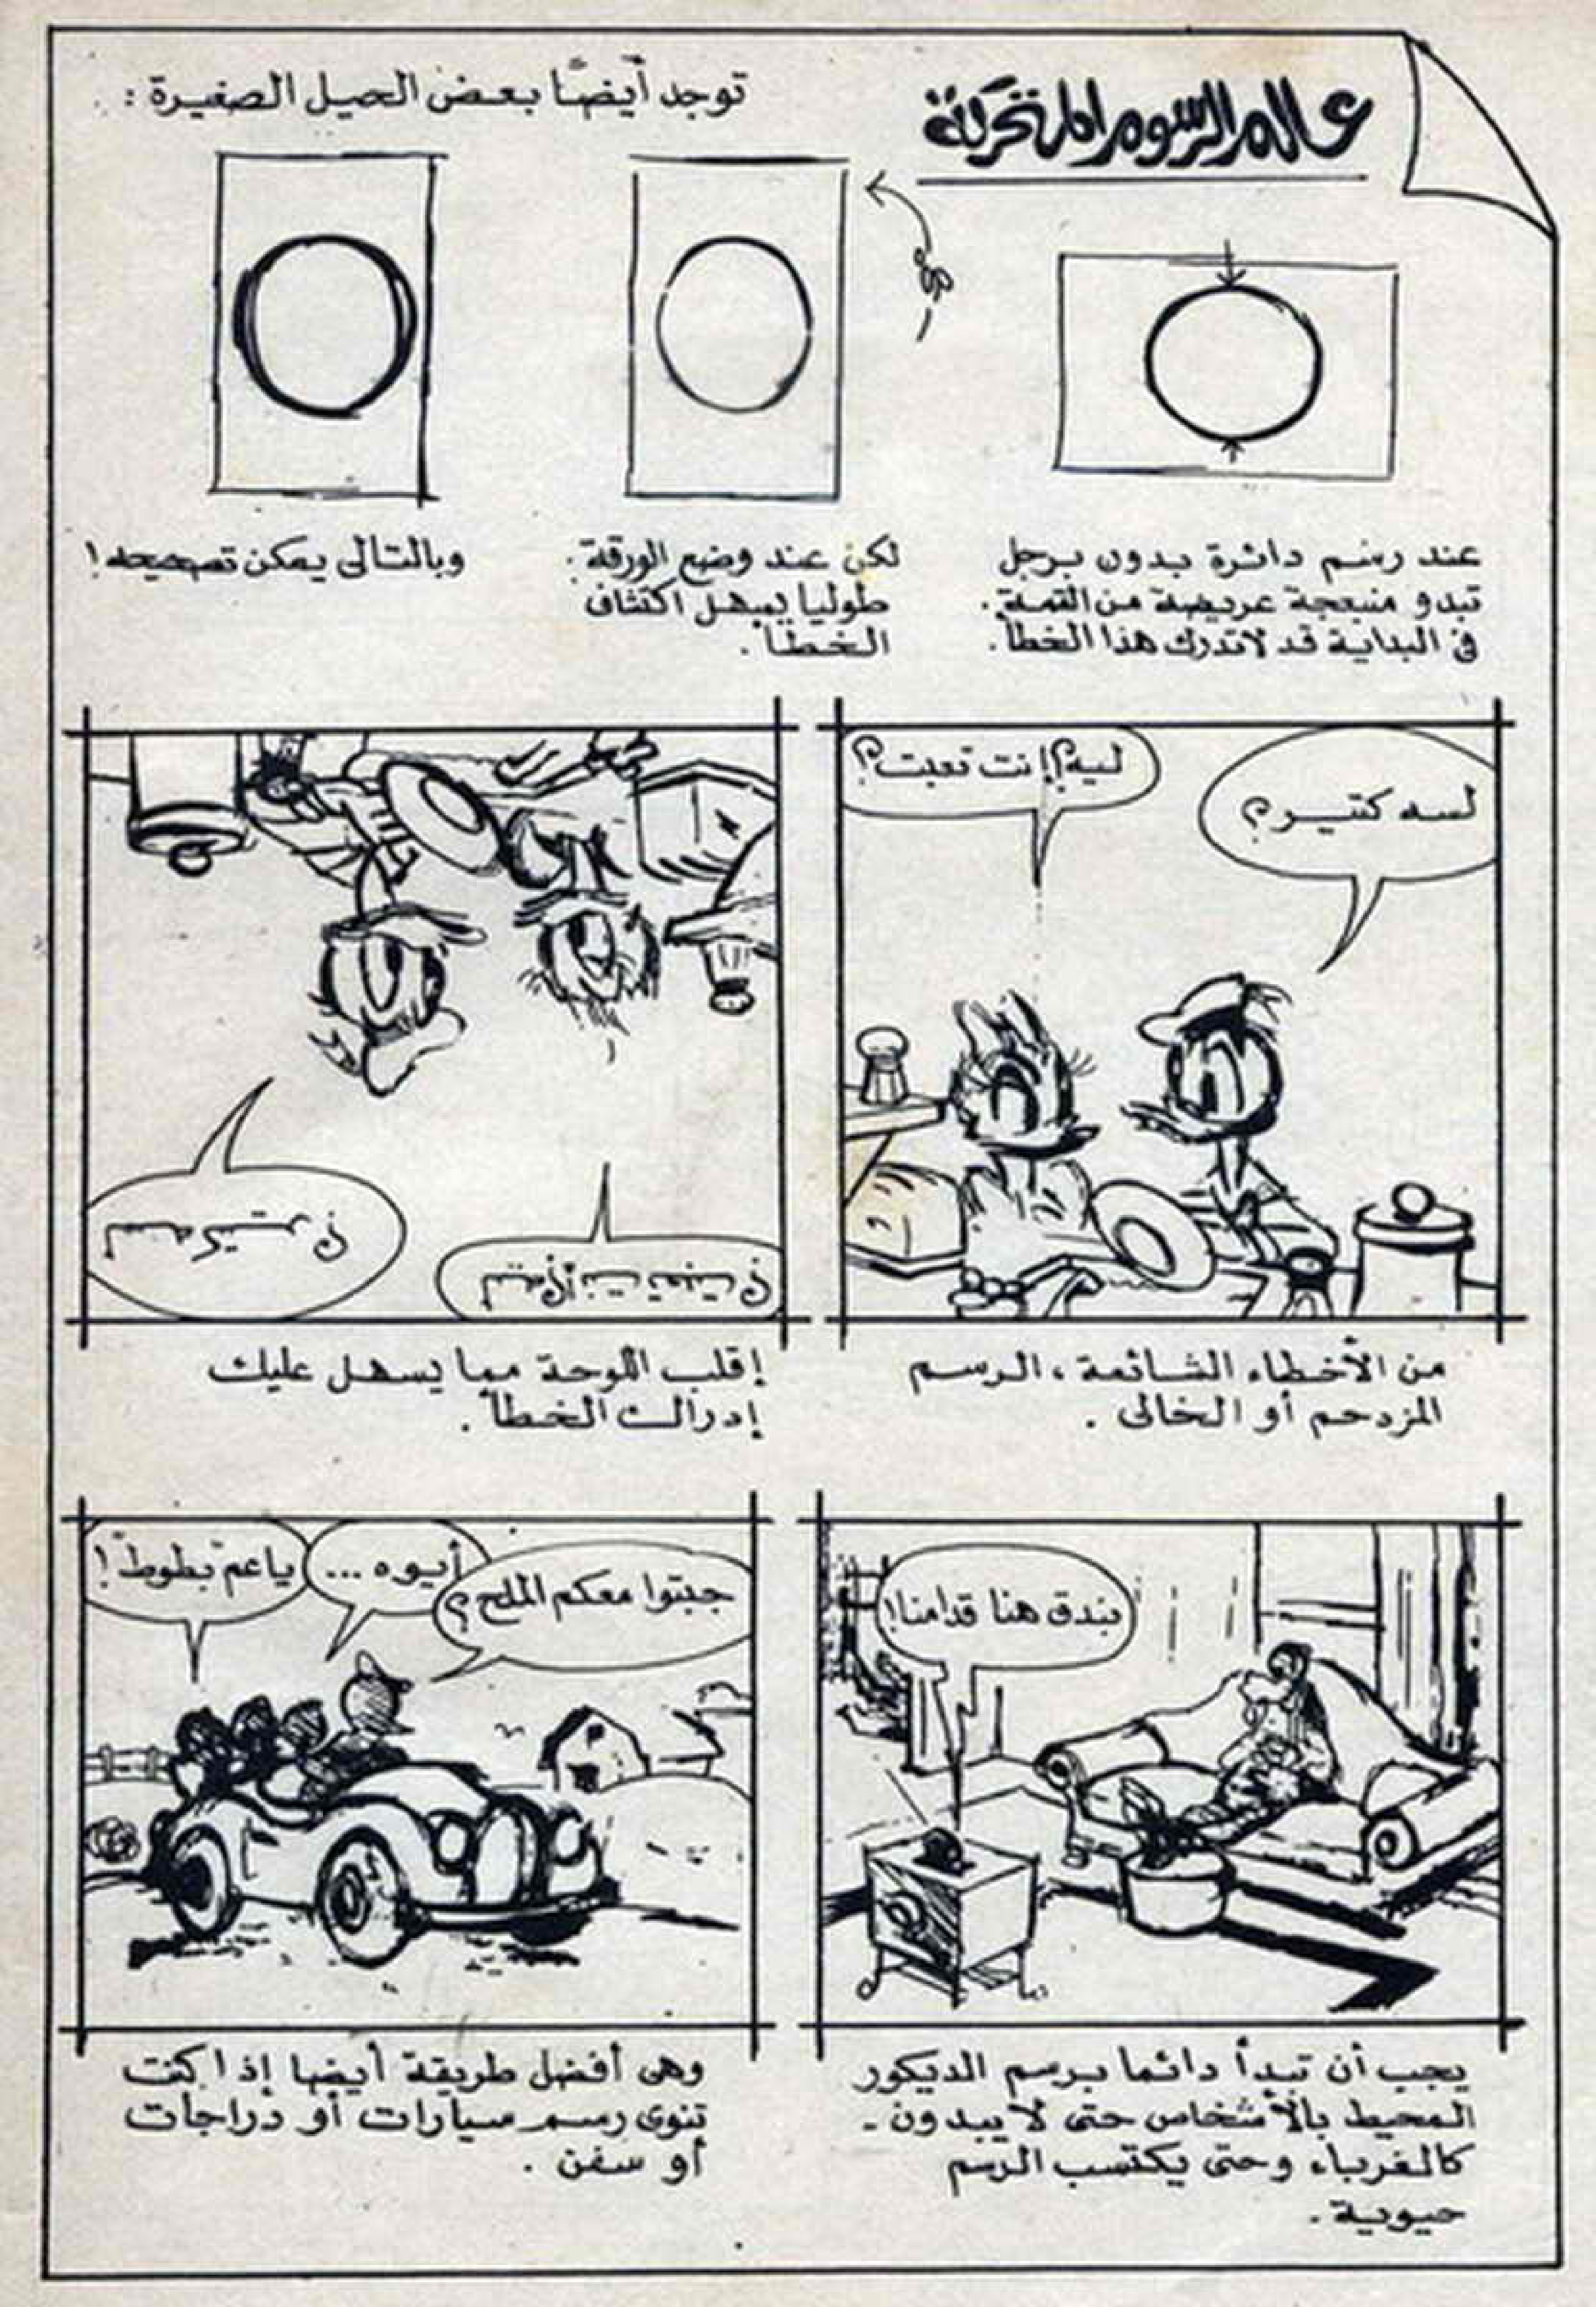 عالم الرسوم المتحركة
توجد أيضًا بعض الحيل الصغيرة :
عند رسم دائرة بدون برجل
تبدو منبعجة عريضة من القمة .
فى البداية قد لا تدرك هذا الخطأ .
لكن عند وضع الورقة
طوليا يسهل اكتشاف
الخطأ .
وبالتالى يمكن تصحيحه !
لسه كتير ؟
ليه ؟! إنت تعبت ؟
من الأخطاء الشائعة ، الرسم
المزدحم أو الخالى .
لسه كتير ؟
ليه ؟! إنت تعبت ؟
إقلب اللوحة مما يسهل عليك
إدراك الخطأ .
بندق هنا قدامنا !
يجب أن تبدأ دائما برسم الديكور
المحيط بالأشخاص حتى لا يبدون -
كالغرباء وحتى يكتسب الرسم
حيوية .
جبتوا معكم الملح ؟
أيوه ...
ياعم بطوط !
وهى أفضل طريقة أيضا إذا كنت
تنوى رسم سيارات أو دراجات
أو سفن .